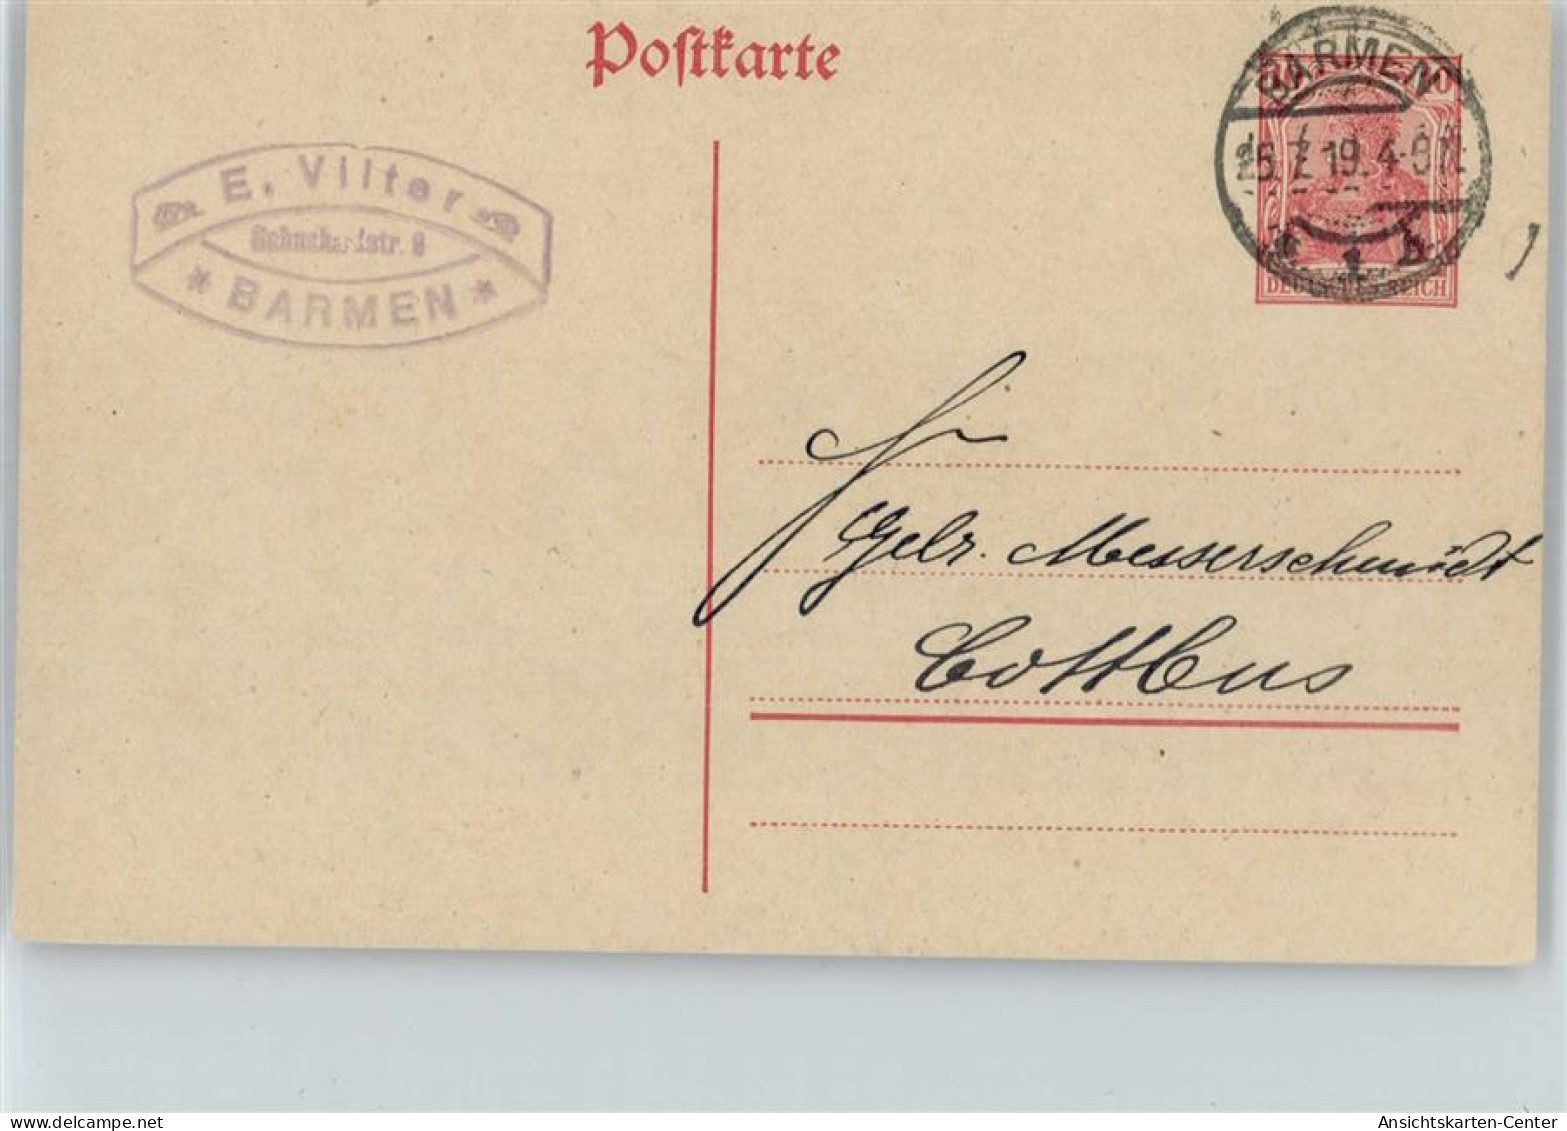 Postkarte
E. Vilter
Schuchardstr. 8
BARMEN
BARMEN
10
19. 4-5
1
DEUTSCHES REICH
Gebr. Messerschmidt
Cottbus
Ansichtskarten-Center